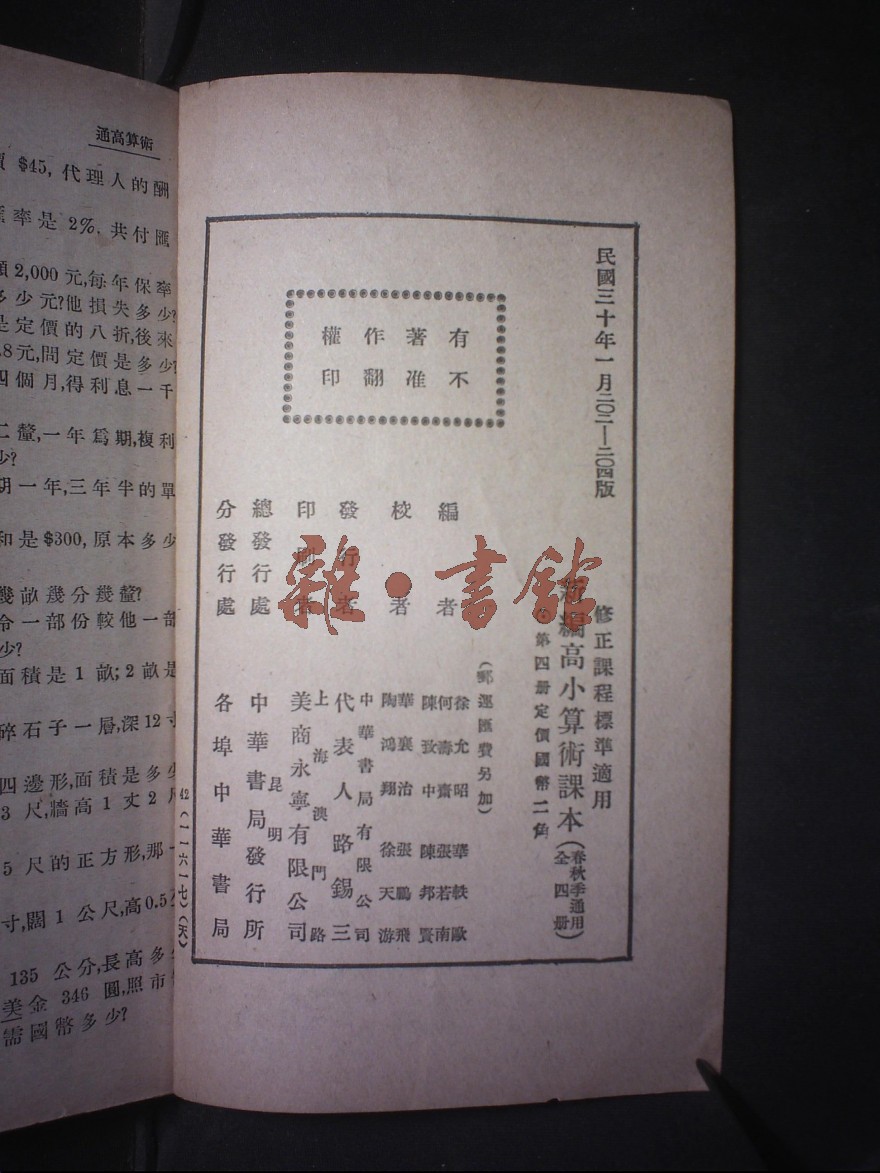 民國三十年一月二〇二—二〇四版
修正課程標準適用
新編高小算術課本(春秋季通用 全四册)
第四册定價國幣二角
(郵運匯費另加)
有著作權
不准翻印
編者
徐允昭 華軼歐
何壽齋 張若南
陳致中 陳邦賢
校者
華襄治 張鵬飛
陶鴻翔 徐天游
發行者
中華書局有限公司
代表人 路錫三
印刷者
上海澳門路
美商永寧有限公司
總發行處
昆明
中華書局發行所
分發行處
各埠中華書局
(一一六一七)(天)
42
雜·書館
通高算術
$45, 代理人的酬
率是 2%, 共付匯
2,000 元,每年保率
多少元?他損失多少?
是定價的八折,後來
8元,問定價是多少?
四個月,得利息一千
二釐,一年爲期,複利
少?
期一年,三年半的單
和是$300, 原本多少
幾畝幾分幾釐?
令一部份較他一部
少?
面積是 1 畝; 2 畝是
碎石子一層,深12寸
四邊形,面積是多少
3 尺,牆高 1 丈 2 尺
5 尺的正方形,那一
寸,闊 1 公尺,高0.5公
135 公分,長高多
美金 346 圓,照市
需國幣多少?